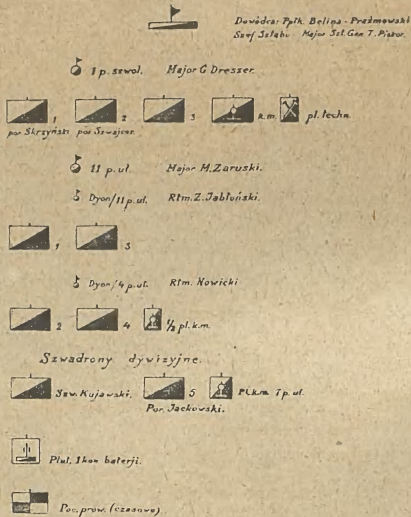 Dowódca: Ppłk. Belina - Prażmowski
Szef Sztabu Major Szt. Gen. T. Piskor.
1 p. szwol. Major G. Dreszer.
1 2 3 k.m. pl. techn.
por. Skrzyński por. Szwajcer
11 p. uł. Major M. Zaruski.
Dyon/11 p. uł. Rtm. Z. Jabłoński.
1 3
Dyon/4 p. uł. Rtm. Nowicki
2 4 ½ pl. k.m.
Szwadrony dywizyjne.
Szw. Kujawski. 5 Pl. k.m. 7 p. uł.
Por. Jackowski.
Plut. 1 kon baterji.
Poc. prow. (czasowo)